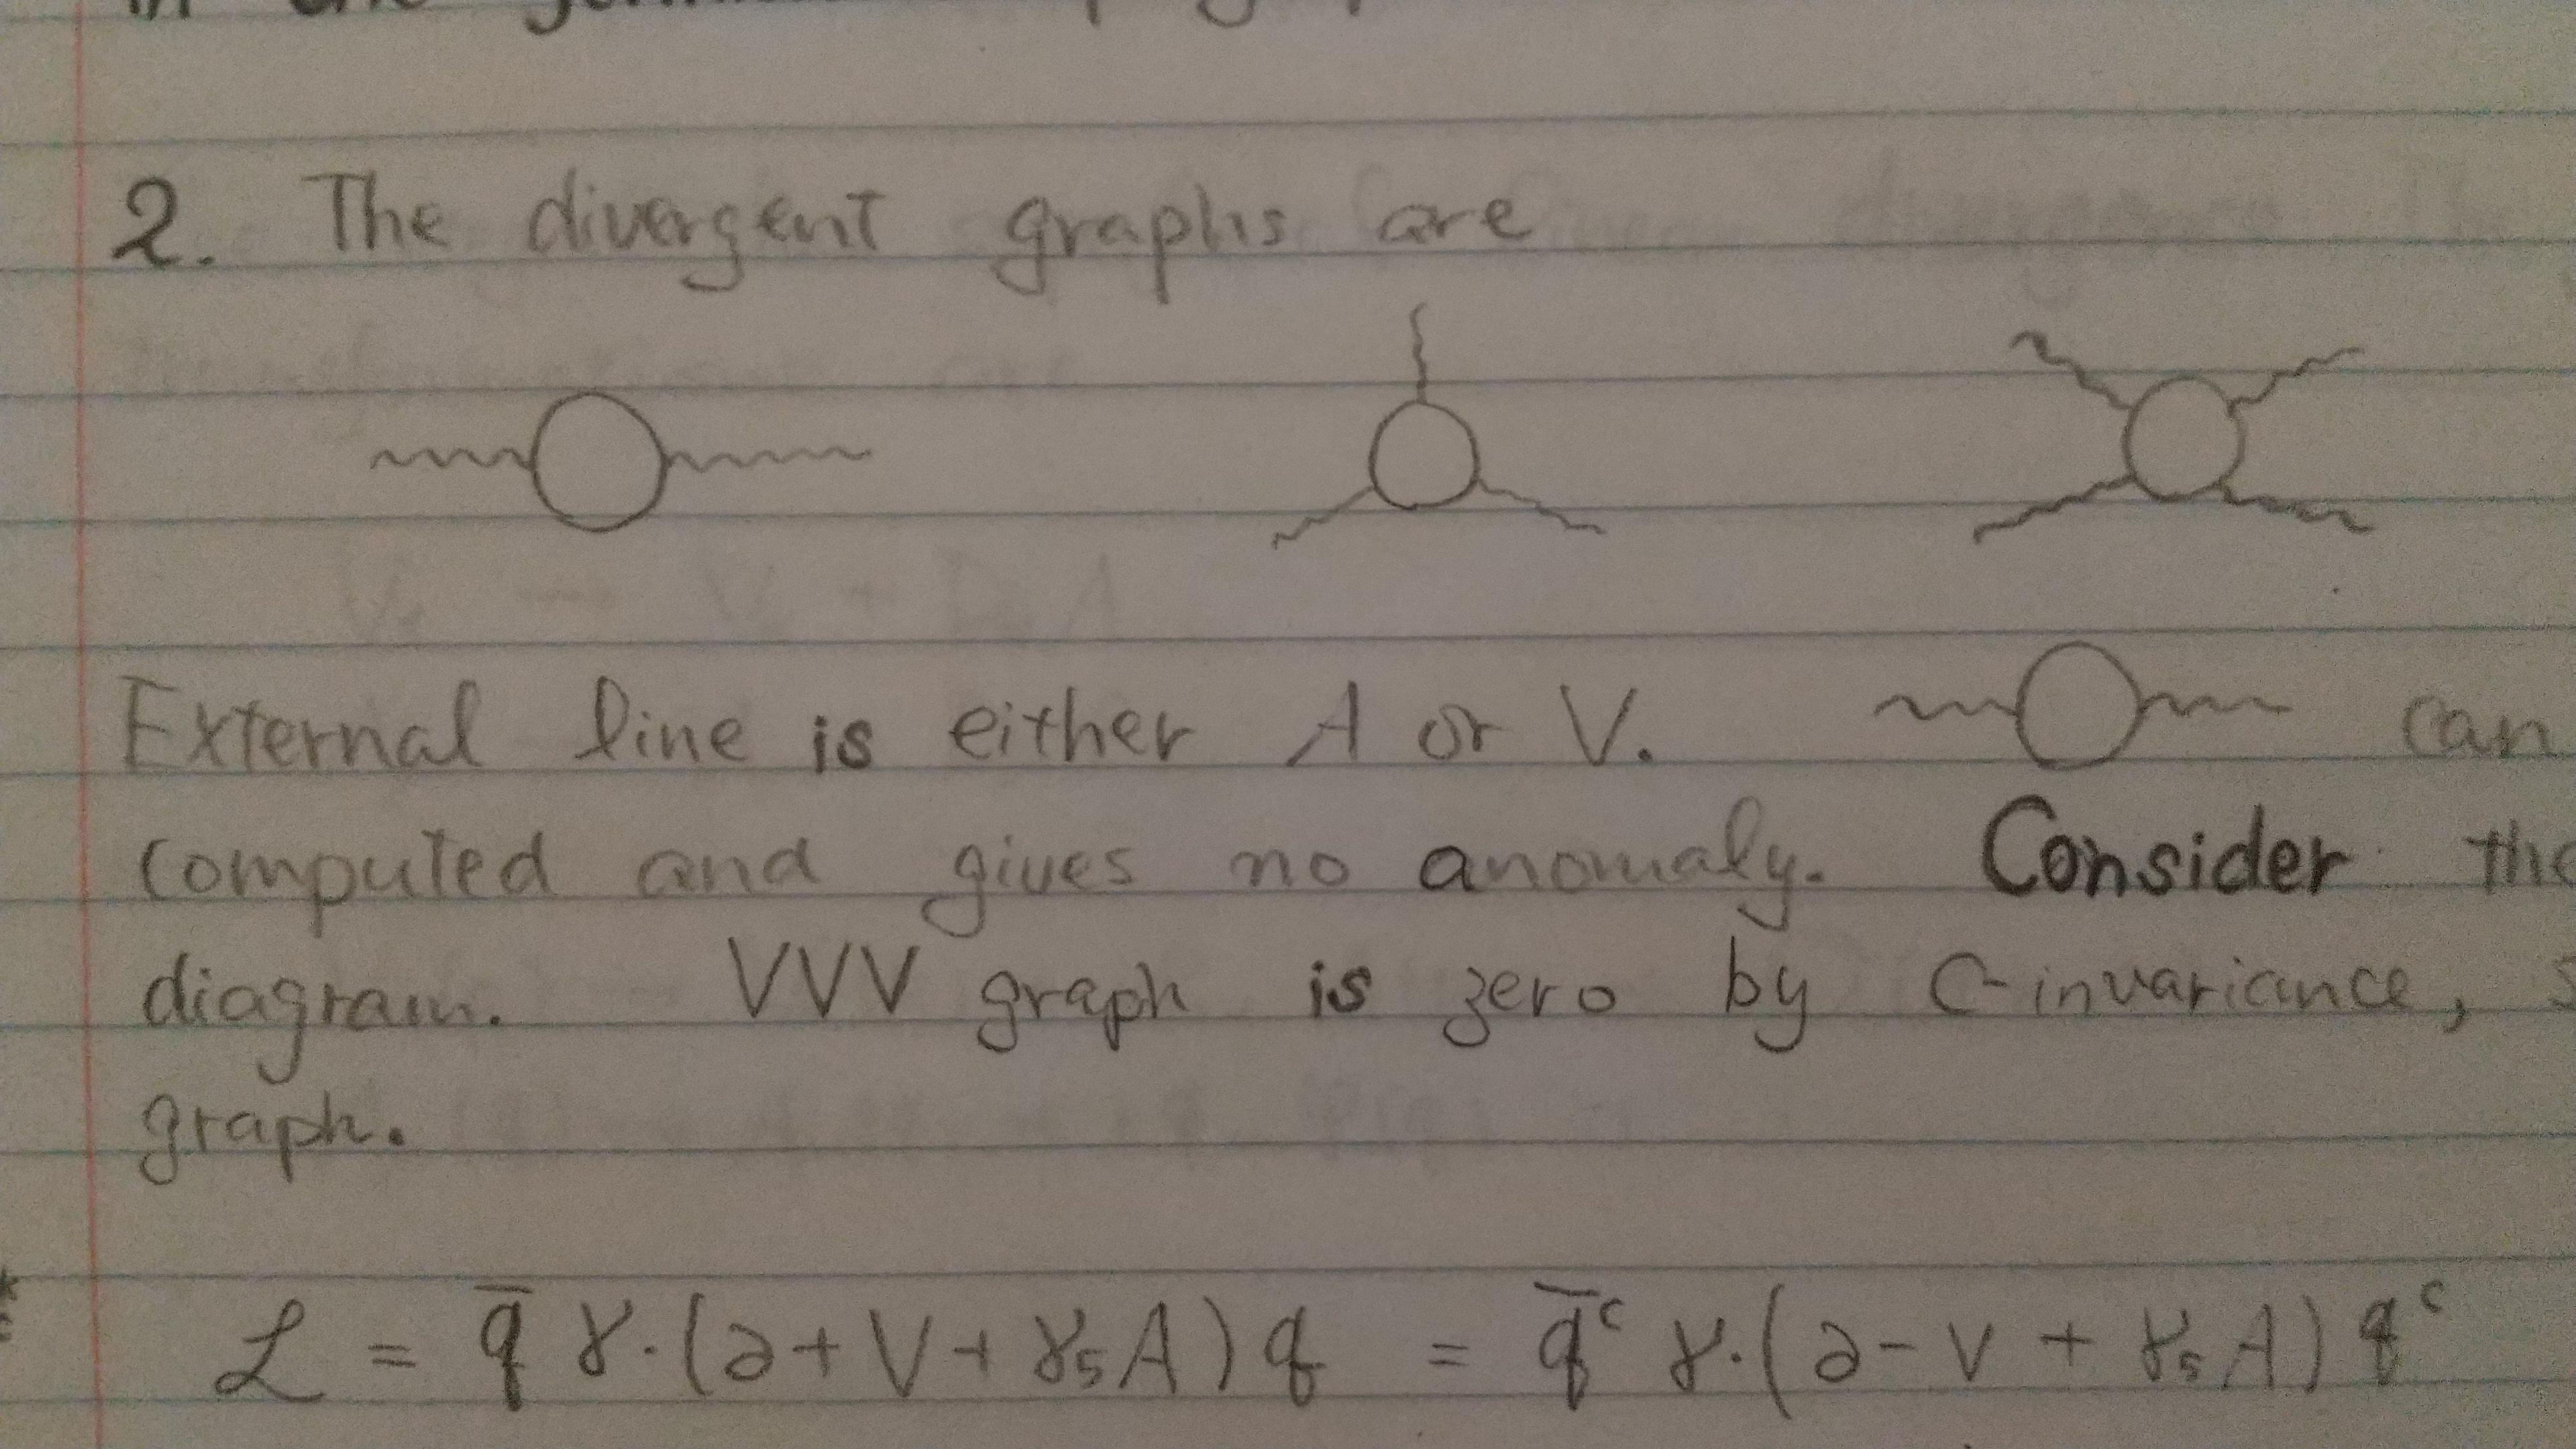 in the
2. The divergent graphs are
External line is either A or V. can
computed and gives no anomaly. Consider the
diagram. VVV graph is zero by C-invariance,
graph.
ℒ = q̄ γ·(∂ + V + γ₅A) q = q̄ᶜ γ·(∂ - V + γ₅A) qᶜ